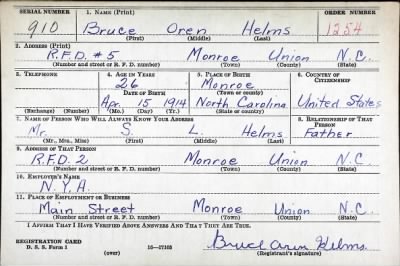 SERIAL NUMBER 1. NAME (Print) ORDER NUMBER
910 Bruce Oren Helms 1254
(First) (Middle) (Last)
2. ADDRESS (Print)
R.F.D. #5 Monroe Union N.C.
(Number and street or R. F. D. number) (Town) (County) (State)
3. TELEPHONE 4. AGE IN YEARS 5. PLACE OF BIRTH 6. COUNTRY OF CITIZENSHIP
26 Monroe
DATE OF BIRTH (Town or county)
Apr. 15 1914 North Carolina United States
(Exchange) (Number) (Mo.) (Day) (Yr.) (State or country)
7. NAME OF PERSON WHO WILL ALWAYS KNOW YOUR ADDRESS 8. RELATIONSHIP OF THAT PERSON
Mr. S. L. Helms Father
(Mr., Mrs., Miss) (First) (Middle) (Last)
9. ADDRESS OF THAT PERSON
R.F.D. 2 Monroe Union N.C.
(Number and street or R. F. D. number) (Town) (County) (State)
10. EMPLOYER'S NAME
N.Y.A.
11. PLACE OF EMPLOYMENT OR BUSINESS
Main Street Monroe Union N.C.
(Number and street or R. F. D. number) (Town) (County) (State)
I AFFIRM THAT I HAVE VERIFIED ABOVE ANSWERS AND THAT THEY ARE TRUE.
REGISTRATION CARD
D. S. S. Form 1 16—17105 Bruce Oren Helms
(over) (Registrant's signature)